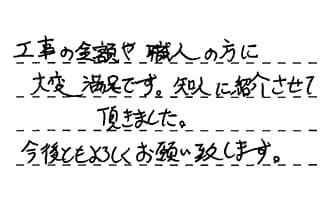 工事の金額や職人の方に
大変満足です。知人に紹介させて
頂きました。
今後ともよろしくお願い致します。